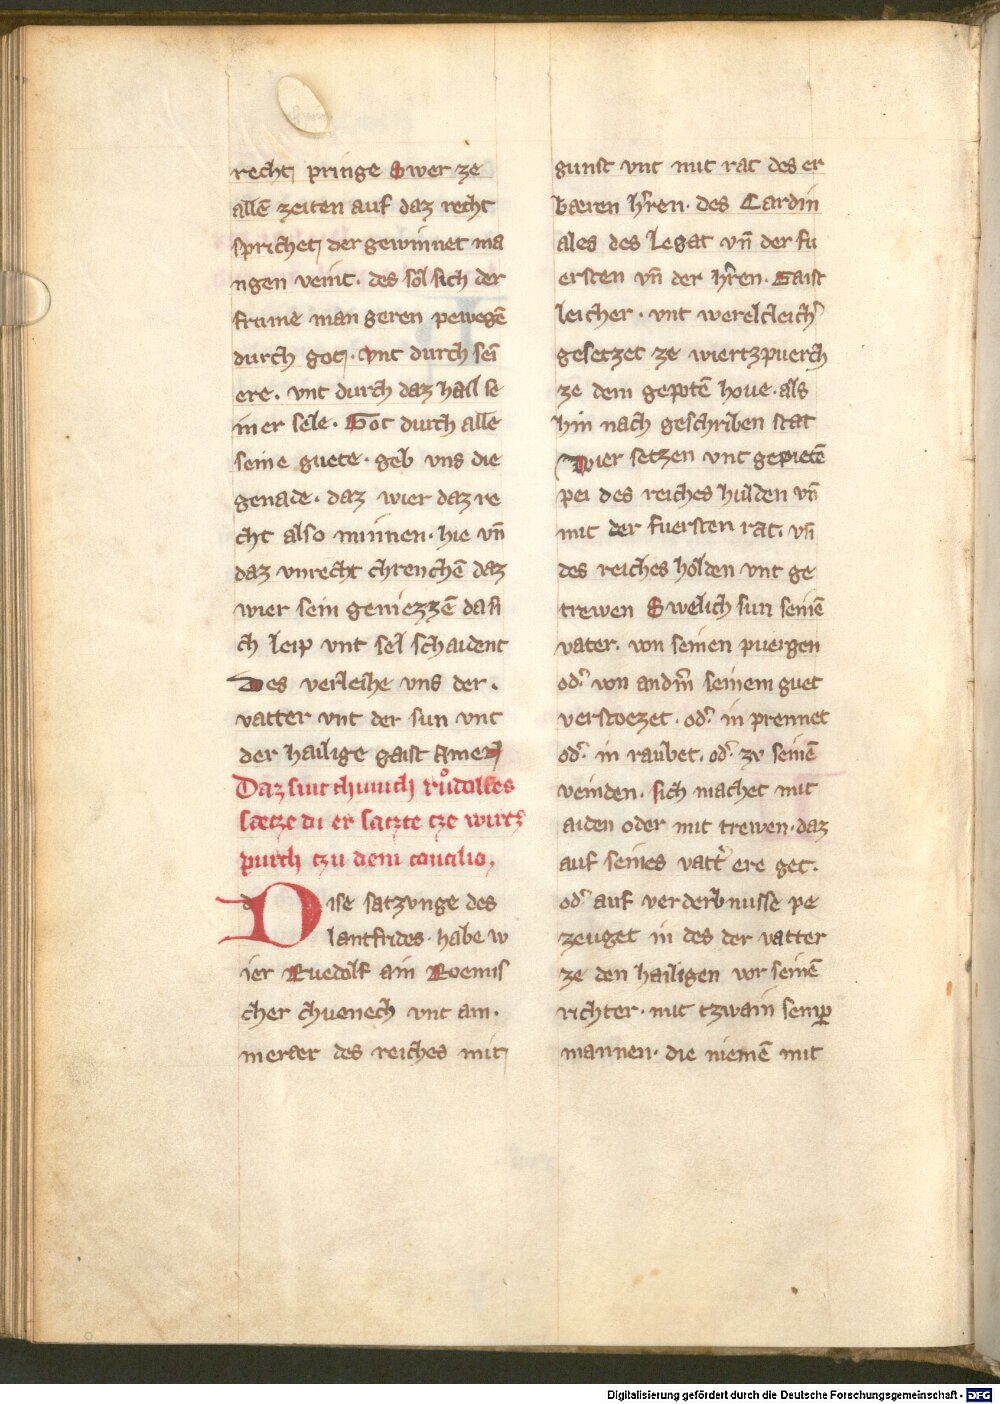 recht pringe Swer ze
allē zeiten auf daz recht
sprichet der gewinnet ma
ngen veint · des sol sich der
frume man geren pewegē
durch got · vnt durch sei
ere · vnt durch daz hail se
iner sele · Got durch alle
seine guete · geb vns die
genade · daz wier daz re
cht also minnen · hie vn̄
daz vnrecht chrenchē daz
wier sein geniezzē da si
ch leip vnt sel schaident
Des verleihe vns der ·
vatter vnt der sun vnt
der hailige gaist Amen
Daz sint chunich růdolfes
sætze di er satzte tze wirtz
purch tzu dem concilio,
Dise satzunge des
lantfrides · habe w
ier Ruedolf ain Roemis
cher chuenech vnt am ·
merær des reiches mit
gunst vnt mit rat des er
bæren hr̄en · des Cardin
ales des legat vn̄ der fu
ersten vn̄ der hr̄en · Gaist
leicher · vnt werltleich̾
gesetzet ze wiertzpuerch
ze dem gepotē houe · als
hin nach geschriben stat
Wier setzen vnt gepietē
pei des reiches hulden vn̄
mit der fuersten rat · vn̄
des reiches holden vnt ge
trewen Swelich sun seinē
vater · von seinen puergen
od̾ von andm̄ seinem guet
verstoezet · od̾ in prennet
od̾ in raubet · od̾ zv seinē
veinden · sich machet mit
aiden oder mit trewen · daz
auf seines vatt̾ ere get ·
od̾ auf verderbnusse pe
zeuget in des der vatter
ze den hailigen vor seinē
richter · mit tzwain semp̲
mannen · die niemē mit
Digitalisierung gefördert durch die Deutsche Forschungsgemeinschaft · DFG